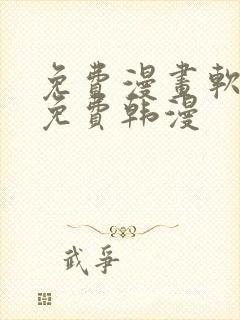 免費漫畫軟
免費韩漫
武爭